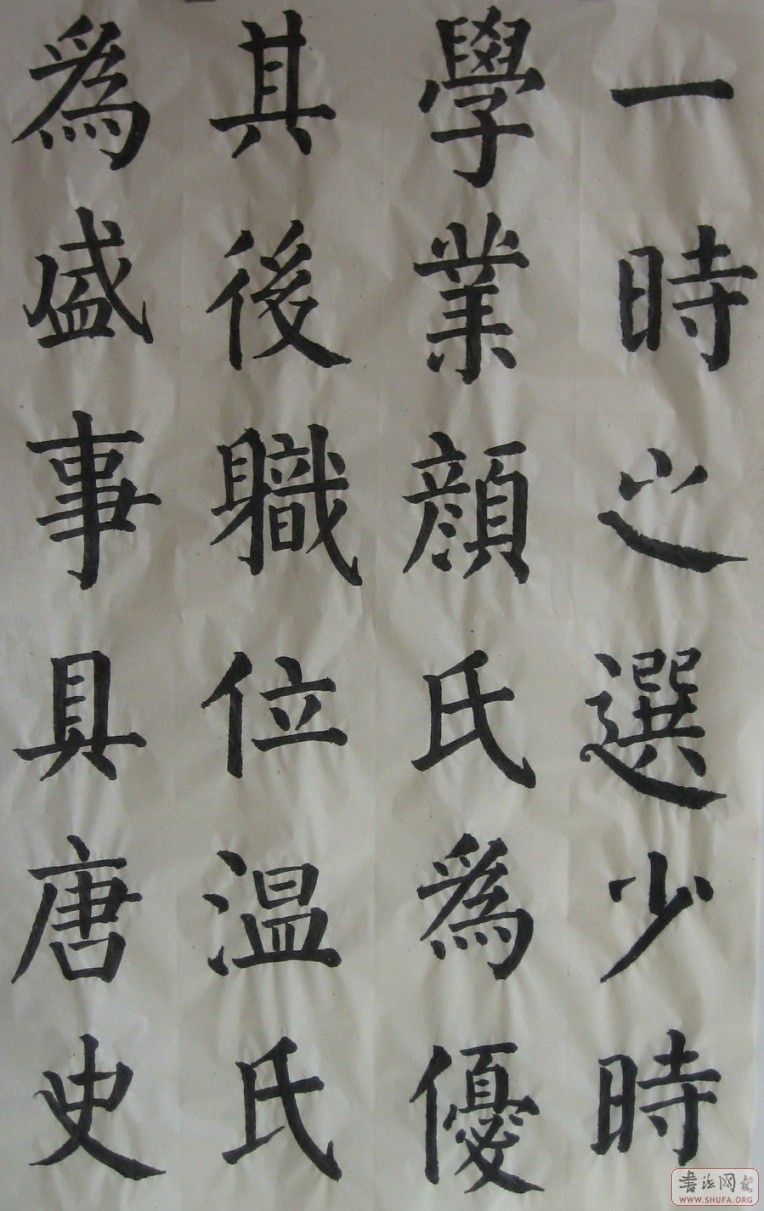 一時之選少時
學業顔氏為優
其後職位温氏
為盛事具唐史
书法网
WWW.SHUFA.ORG